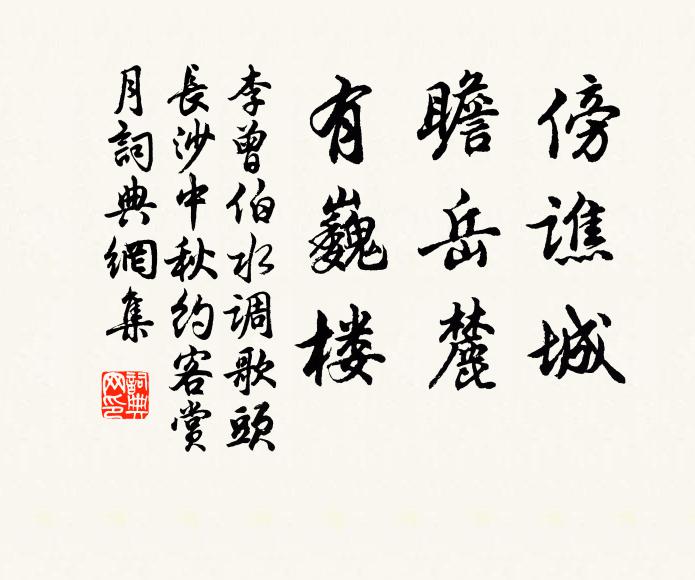 傍谯城
瞻岳麓
有巍楼
李曾伯水调歌頭
長沙中秋约客赏
月詞典網集
詞典网印